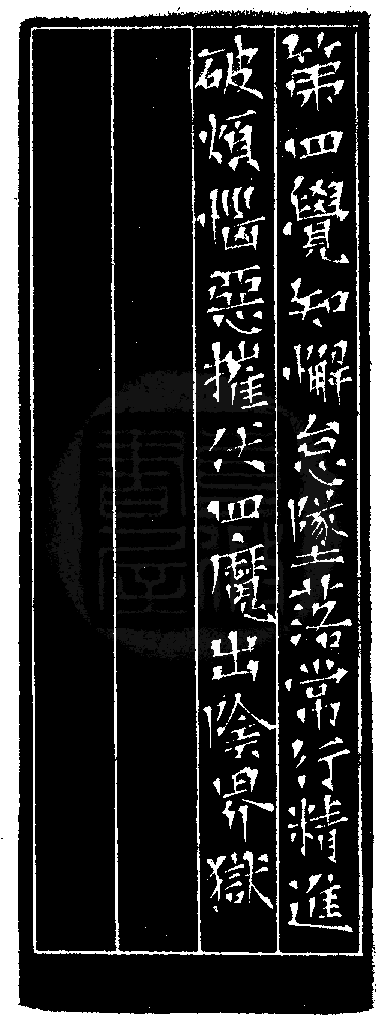 第四覺知懈怠墜落常行精進
破煩惱惡摧伏四魔出陰界獄